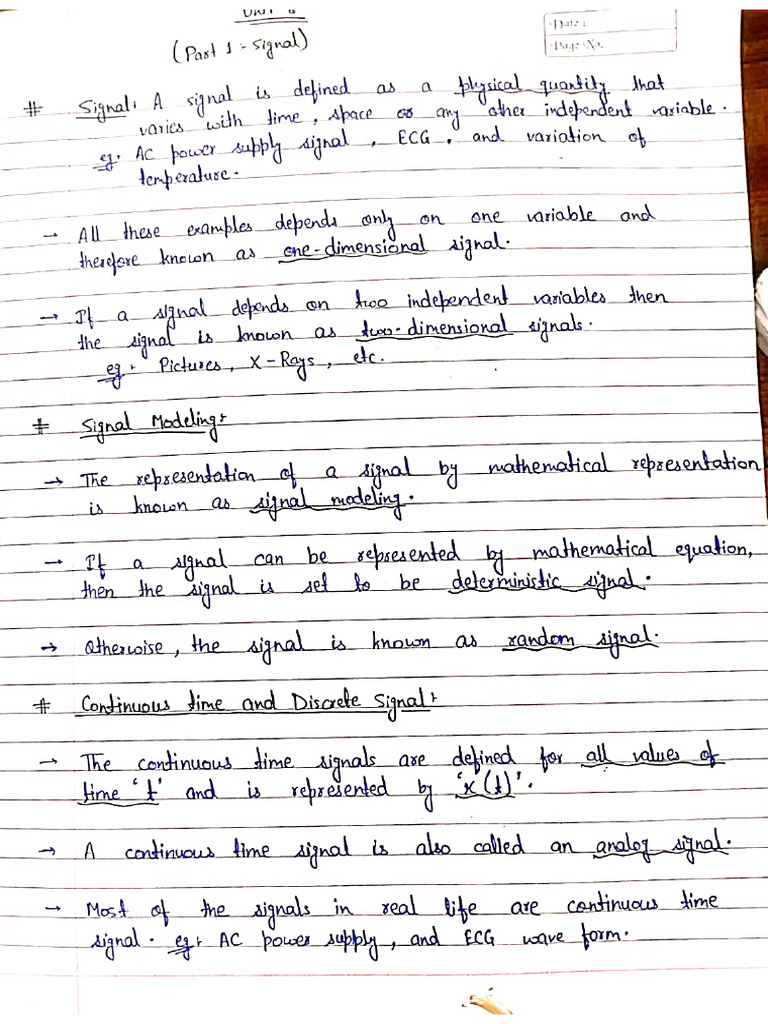 (Part 1 - Signal)
Date :
Page No.
# Signal: A signal is defined as a physical quantity that
varies with time, space or any other independent variable.
eg. AC power supply signal, ECG, and variation of
temperature.
→ All these examples depends only on one variable and
therefore known as one-dimensional signal.
→ If a signal depends on two independent variables then
the signal is known as two-dimensional signals.
eg: Pictures, X-Rays, etc.
# Signal Modeling:
→ The representation of a signal by mathematical representation
is known as signal modeling.
→ If a signal can be represented by mathematical equation,
then the signal is set to be deterministic signal.
→ Otherwise, the signal is known as random signal.
# Continuous time and Discrete Signal:
→ The continuous time signals are defined for all values of
time 't' and is represented by 'x(t)'.
→ A continuous time signal is also called an analog signal.
→ Most of the signals in real life are continuous time
signal. eg: AC power supply, and ECG wave form.